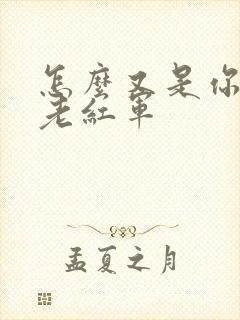 怎麼又是你
老紅軍
孟夏之月